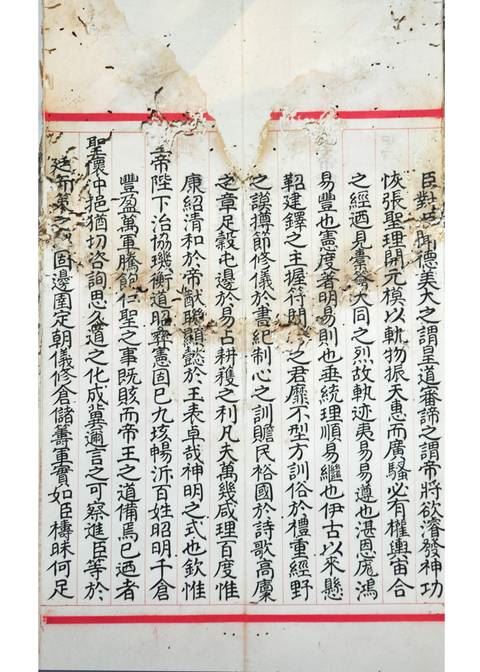 臣對聞德美大之謂皇道審諦之謂帝將欲濬發神功
恢張聖理開元模以軌物振天惠而廣騷必有權輿宙合
之經迺見橐籥大同之烈故軌迹夷易易遵也湛恩厖鴻
易豐也憲度著明易則也垂統理順易繼也伊古以來懸
鞀建鐸之主握符之君靡不型方訓俗於禮重經野
之謨撙節修儀於書紀制心之訓贍民裕國於詩歌高廩
之章足穀屯邊於易占耕穫之利凡夫萬幾咸理百度惟
康紹清和於帝猷聯顯懿於王表卓哉神明之式也欽惟
帝陛下治協璣衡道昭彝憲固已九垓暢泝百姓昭明千倉
豐盈萬軍騰飽仁聖之事既賅而帝王之道備焉已迺者
聖懷沖挹猶切咨詢思久道之化成冀邇言之可察進臣等於
廷而策之固邊圉定朝儀修倉儲籌軍實如臣檮昧何足